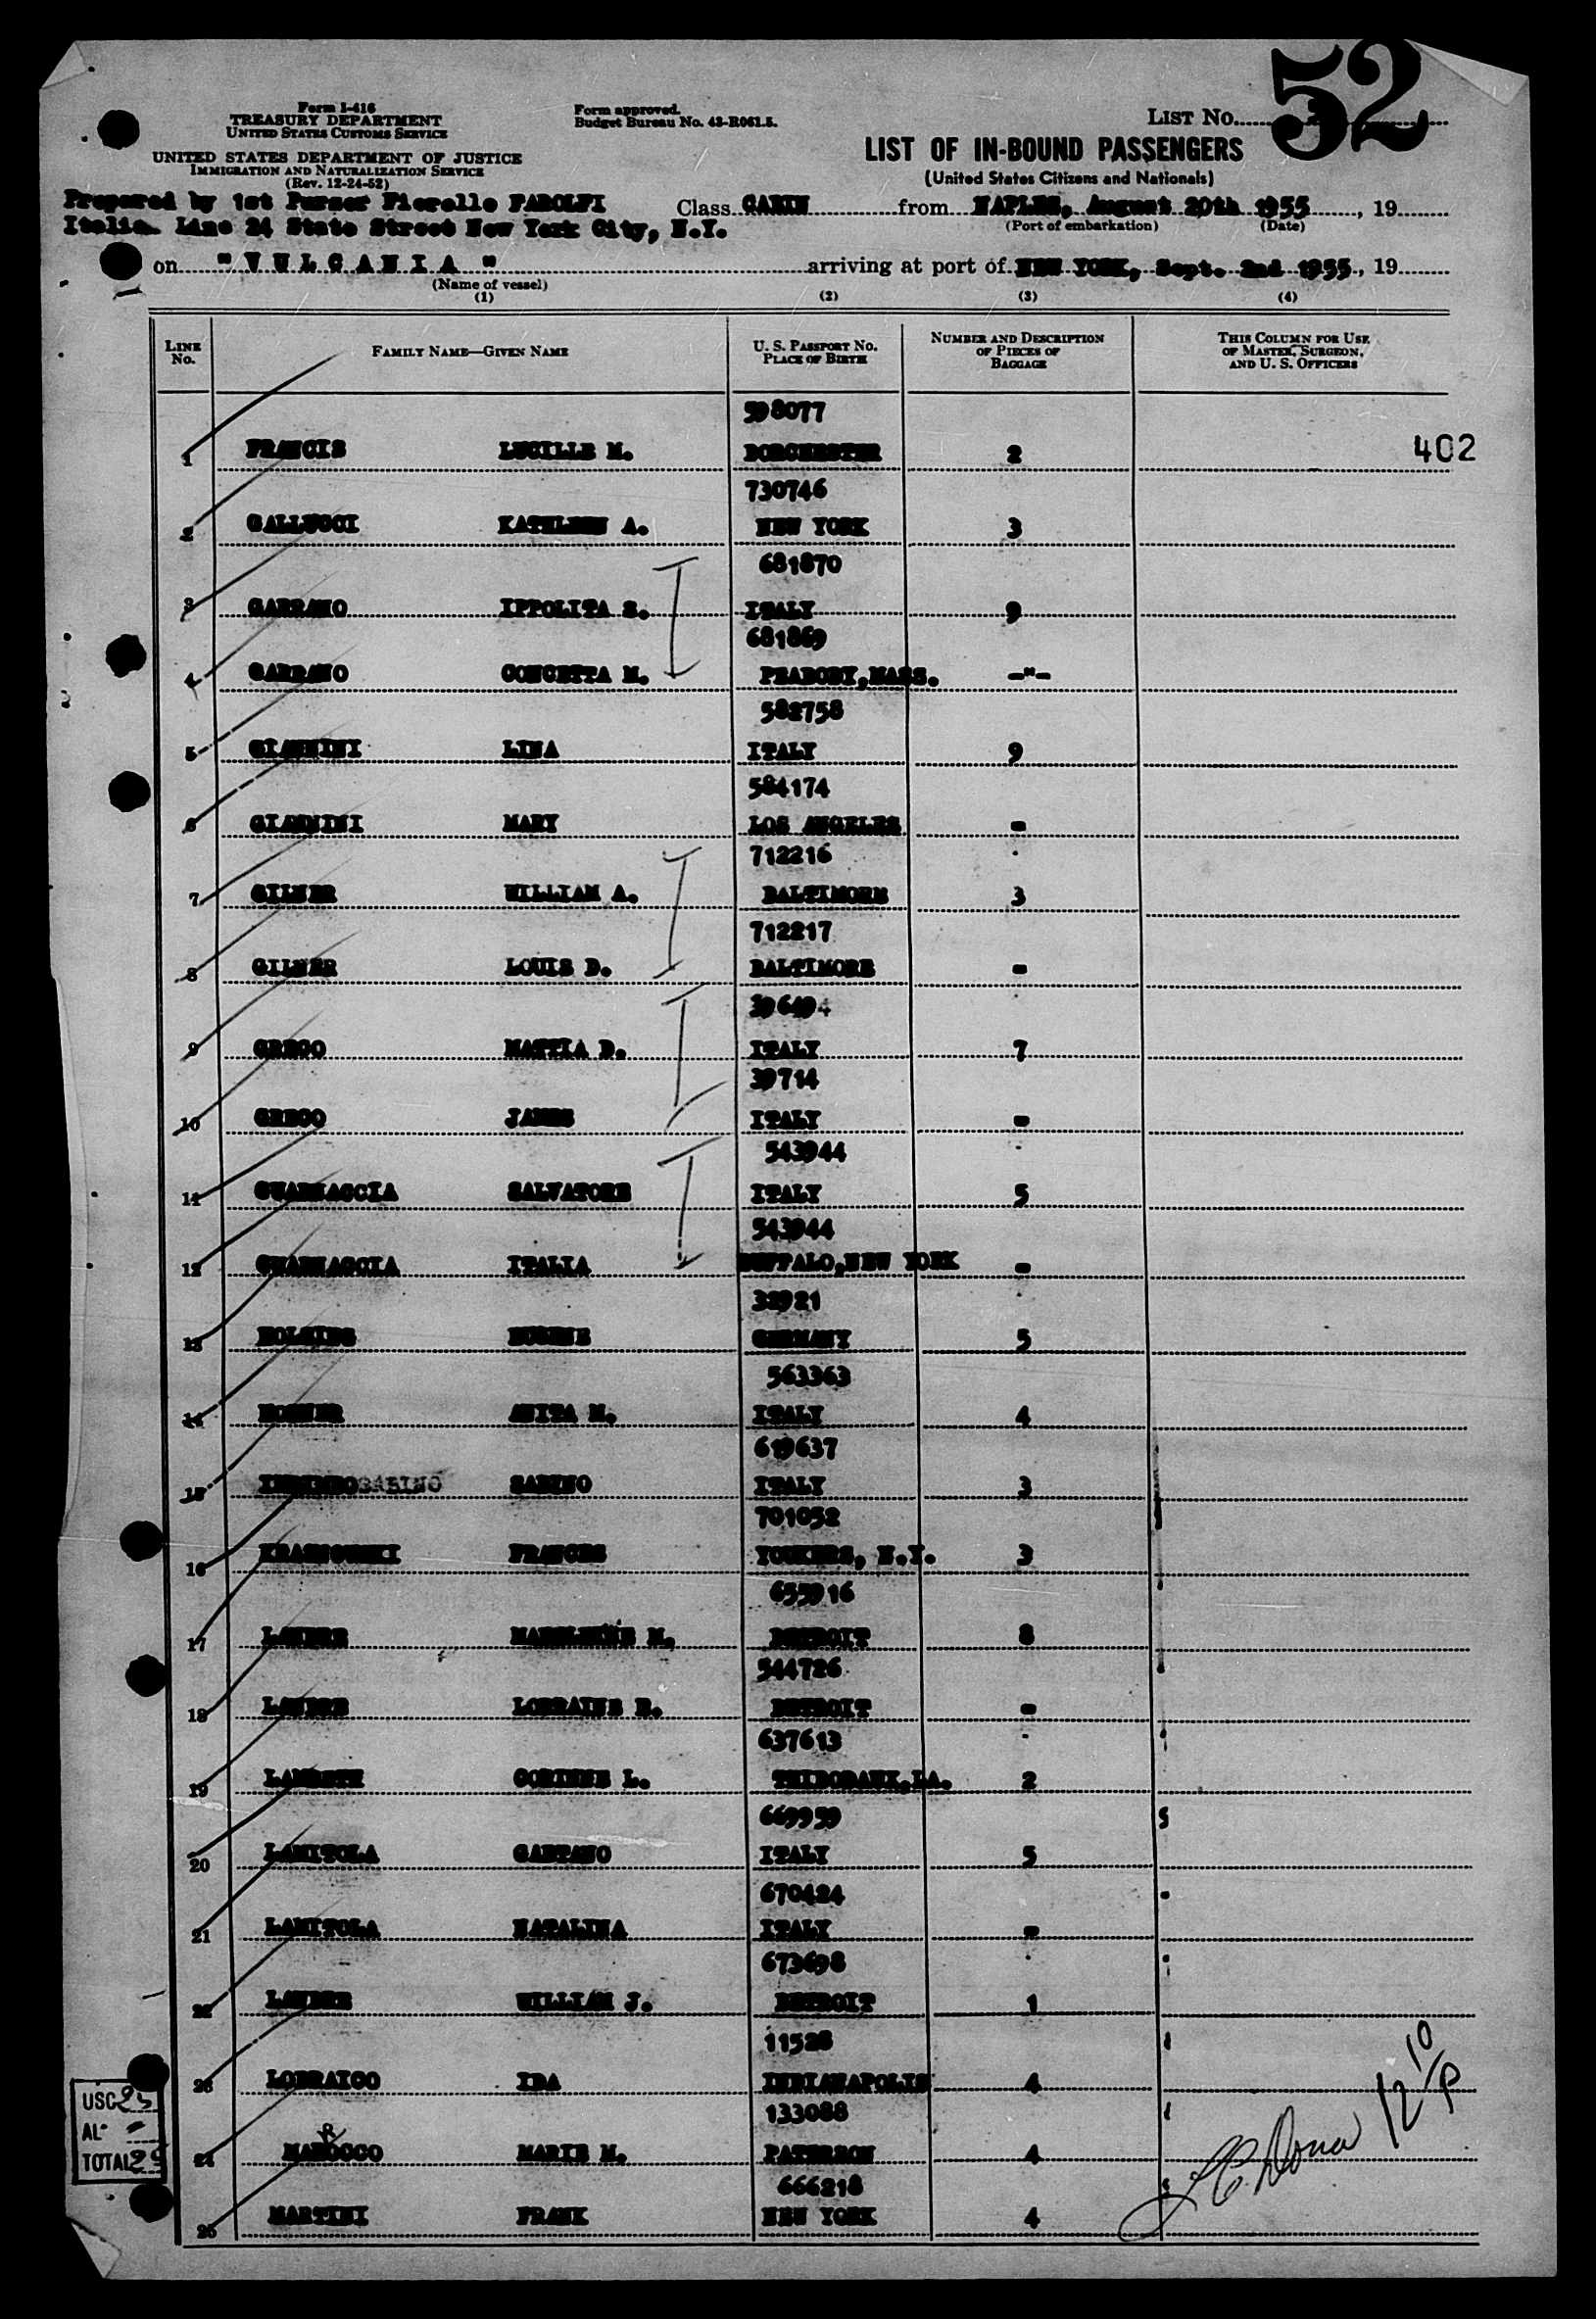 52
Form I-416
TREASURY DEPARTMENT
UNITED STATES CUSTOMS SERVICE
Form approved.
Budget Bureau No. 43-R061.5.
LIST No.
UNITED STATES DEPARTMENT OF JUSTICE
IMMIGRATION AND NATURALIZATION SERVICE
(Rev. 12-24-52)
LIST OF IN-BOUND PASSENGERS
(United States Citizens and Nationals)
Prepared by 1st Purser Fiorello FAROLFI
Italian Line 24 State Street New York City, N.Y.
Class CABIN from NAPLES, August 20th 1955, 19
(Port of embarkation) (Date)
on "VULCANIA" arriving at port of NEW YORK, Sept. 2nd 1955, 19
(Name of vessel)
(1) (2) (3) (4)
LINE No. FAMILY NAME—GIVEN NAME U. S. PASSPORT No. PLACE OF BIRTH NUMBER AND DESCRIPTION OF PIECES OF BAGGAGE THIS COLUMN FOR USE OF MASTER, SURGEON, AND U. S. OFFICERS
598077
1 FRANCIS LUCILLE M. DORCHESTER 2 402
730746
2 GALLUCCI KATHLEEN A. NEW YORK 3
681870
3 GARRANO IPPOLITA S. ITALY 9
681869
4 GARRANO CONCETTA M. PEABODY, MASS. -"-
582758
5 GIANNINI LINA ITALY 9
584174
6 GIANNINI MARY LOS ANGELES -
712216
7 GILNER WILLIAM A. BALTIMORE 3
712217
8 GILNER LOUIS D. BALTIMORE -
396494
9 GRECO MATTIA D. ITALY 7
39714
10 GRECO JAMES ITALY -
543944
11 GUARNACCIA SALVATORE ITALY 5
543944
12 GUARNACCIA ITALIA BUFFALO, NEW YORK -
32921
13 EUGENE GERMANY 5
563363
14 ANITA M. ITALY 4
619637
15 SABINO SABINO ITALY 3
701052
16 KRASNOWSKI FRANCES YONKERS, N.Y. 3
655916
17 MADELEINE M. DETROIT 8
544726
18 LORRAINE E. DETROIT -
637613
19 CORINNE L. THIBODAUX, LA. 2
669959
20 LAMITOLA GAETANO ITALY 5
670424
21 LAMITOLA NATALINA ITALY -
673698
22 WILLIAM J. DETROIT 1
11528
23 LOBRAICO IDA INDIANAPOLIS 4
133088
R
24 MAROCCO MARIE M. PATERSON 4
666218
25 MARTINI FRANK NEW YORK 4
USC 25
AL -
TOTAL 25
12 10/P